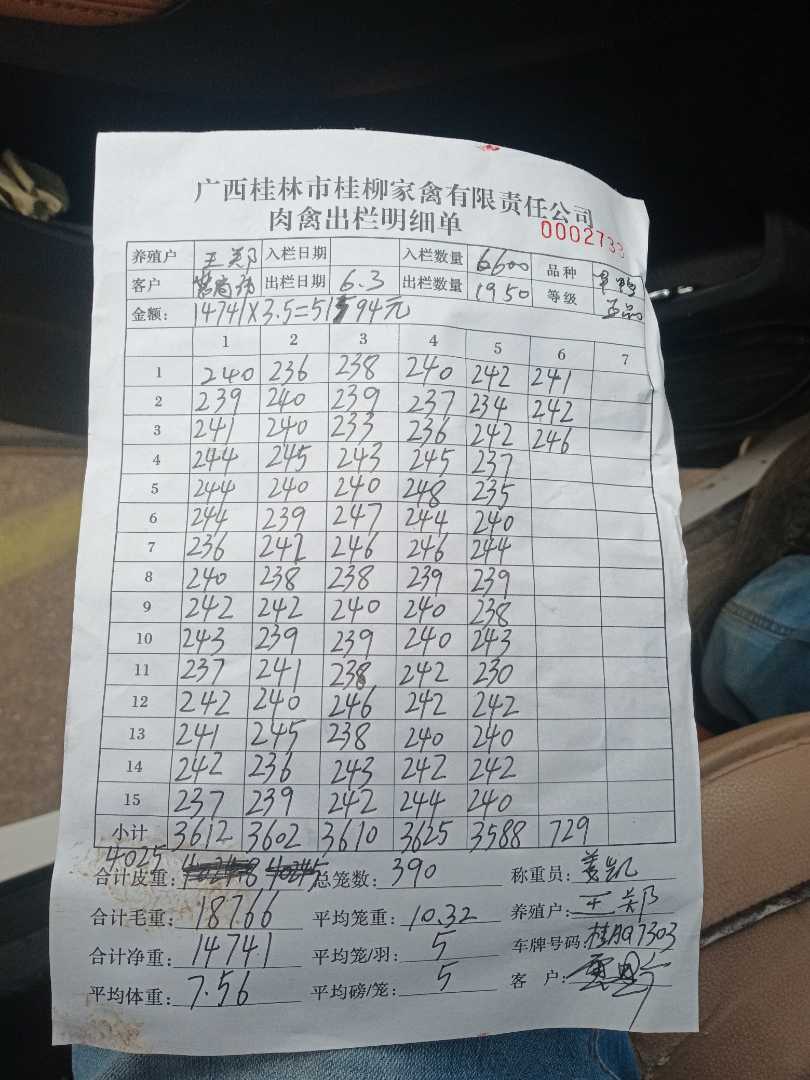 广西桂林市桂柳家禽有限责任公司
肉禽出栏明细单
0002733
养殖户 王郑 入栏日期 入栏数量 6600 品种
客户 出栏日期 6.3 出栏数量 1950 等级
金额: 14741X3.5=51594元
1 2 3 4 5 6 7
1 240 236 238 240 242 241
2 239 240 239 237 234 242
3 241 240 233 236 242 246
4 244 245 243 245 237
5 244 240 240 248 235
6 244 239 247 244 240
7 236 242 246 246 244
8 240 238 238 239 239
9 242 242 240 240 238
10 243 239 239 240 243
11 237 241 238 242 230
12 242 240 246 242 242
13 241 245 238 240 240
14 242 236 243 242 242
15 237 239 242 244 240
小计 3612 3602 3610 3625 3588 729
4025
合计皮重: 总笼数: 390 称重员: 姜凯
合计毛重: 18766 平均笼重: 10.32 养殖户: 王郑
合计净重: 14741 平均笼/羽: 5 车牌号码: 7303
平均体重: 7.56 平均磅/笼: 5 客 户: